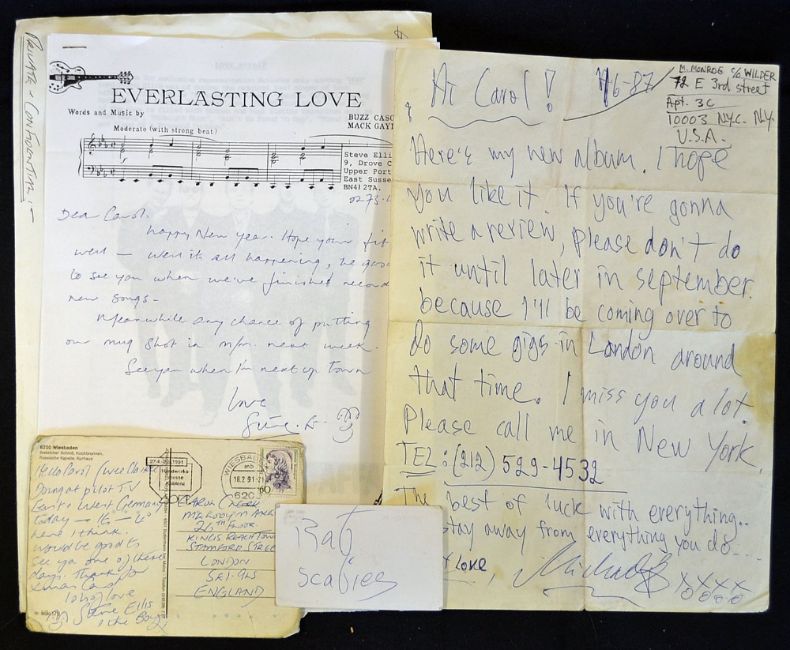 PRIVATE & CONFIDENTIAL:-
EVERLASTING LOVE
Words and Music by
BUZZ CASO
MACK GAYD
Moderate (with strong beat)
Steve Elli
9, Drove C
Upper Port
East Susse
BN41 2A.
0273-
Dear Carol.
Happy New Year. Hope you're fit
well — 
to see you when we've finished record
new songs-
Meanwhile any chance of putting
our mug shot in next week.
See you when I'm next up town
love
Hi Carol!
6-87
M. MONROE C/O WILDER
72 E 3rd street
Apt. 3C
10003 N.Y.C. N.Y.
U.S.A.
Here's my new album. I hope
you like it. If you're gonna
write a review, please don't do
it until later in september.
because I'll be coming over to
do some gigs in London around
that time. I miss you a lot.
Please call me in New York.
TEL: (212) 529-4532
The best of luck with everything..
stay away from everything you do....
love, Michael
xxxx
6200 Wiesbaden
Hello Carol
Doing a pilot TV
East & West Germany
today
here I think.
Would be good to
see ya one of these
days. Thank you for
xmas card
lots of love
Steve Ellis
& the Boys
WIESBADEN
18.2.91
620
60
26TH FLOOR
KINGS REACH TOWER
STAMFORD STREET
LONDON
SE1 9LS
ENGLAND
Rat
scabies